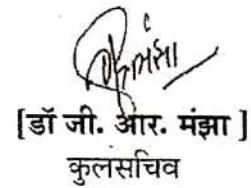 [डॉ जी. आर. मंझा ]
कुलसचिव